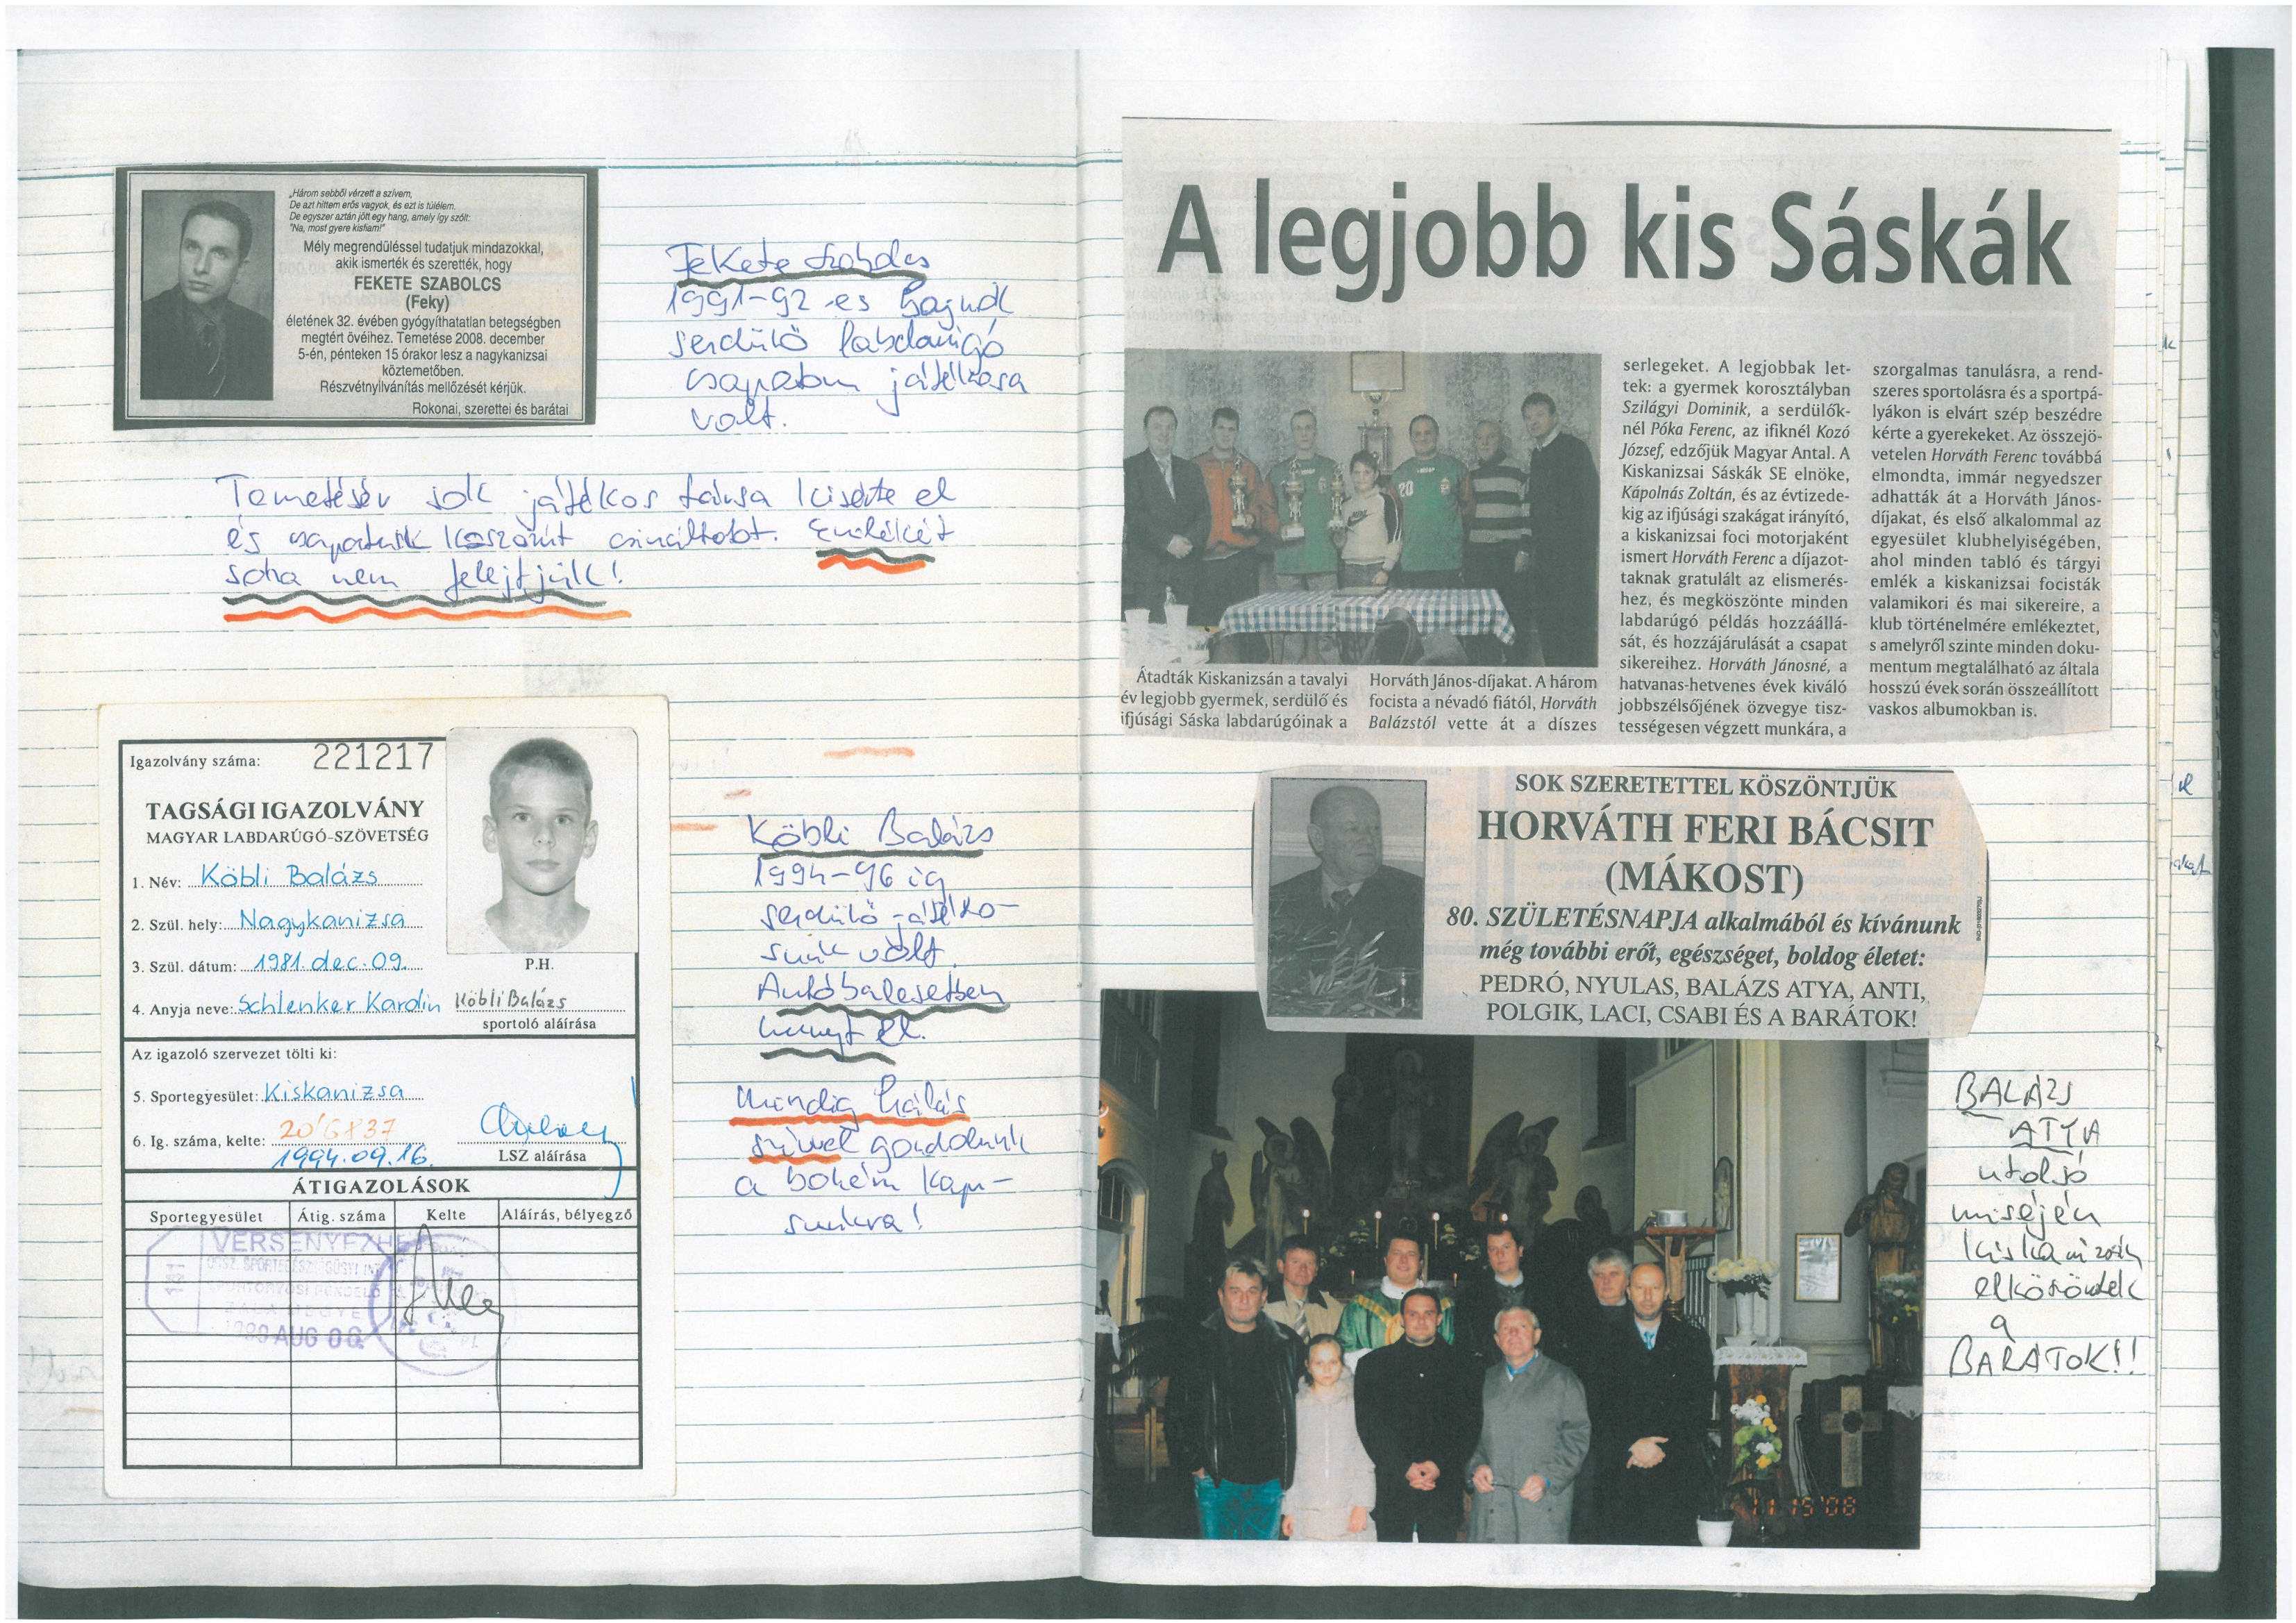 „Három sebből vérzett a szívem,
De azt hittem erős vagyok, és ezt is túlélem.
De egyszer aztán jött egy hang, amely így szólt:
"Na, most gyere kisfiam!"
Mély megrendüléssel tudatjuk mindazokkal,
akik ismerték és szerették, hogy
FEKETE SZABOLCS
(Feky)
életének 32. évében gyógyíthatatlan betegségben
megtért övéihez. Temetése 2008. december
5-én, pénteken 15 órakor lesz a nagykanizsai
köztemetőben.
Részvétnyilvánítás mellőzését kérjük.
Rokonai, szerettei és barátai
Fekete Szabolcs
1991-92-es bajnok
serdülő labdarúgó
csapatom játékosa
volt.
Temetésén sok játékos társa kisérte el
és csapatunk koszorút csináltatott. Emlékét
soha nem felejtjük!
Igazolvány száma: 221217
TAGSÁGI IGAZOLVÁNY
MAGYAR LABDARÚGÓ-SZÖVETSÉG
1. Név: Köbli Balázs
2. Szül. hely: Nagykanizsa
3. Szül. dátum: 1981. dec. 09.
P.H.
4. Anyja neve: Schlenker Karolin
Köbli Balázs
sportoló aláírása
Az igazoló szervezet tölti ki:
5. Sportegyesület: Kiskanizsa
6. Ig. száma, kelte:
1994.09.16.
LSZ aláírása
ÁTIGAZOLÁSOK
Sportegyesület Átig. száma Kelte Aláírás, bélyegző
AUG 08.
Köbli Balázs
1994-96 ig
serdülő játéko-
sunk volt.
Autóbalesetben
hunyt el.
Mindig hálás
szívvel gondolunk
a bohém kapu-
sunkra!
A legjobb kis Sáskák
Átadták Kiskanizsán a tavalyi
év legjobb gyermek, serdülő és
ifjúsági Sáska labdarúgóinak a
Horváth János-díjakat. A három
focista a névadó fiától, Horváth
Balázstól vette át a díszes
serlegeket. A legjobbak let-
tek: a gyermek korosztályban
Szilágyi Dominik, a serdülők-
nél Póka Ferenc, az ifiknél Kozó
József, edzőjük Magyar Antal. A
Kiskanizsai Sáskák SE elnöke,
Kápolnás Zoltán, és az évtizede-
kig az ifjúsági szakágat irányító,
a kiskanizsai foci motorjaként
ismert Horváth Ferenc a díjazot-
taknak gratulált az elismerés-
hez, és megköszönte minden
labdarúgó példás hozzáállá-
sát, és hozzájárulását a csapat
sikereihez. Horváth Jánosné, a
hatvanas-hetvenes évek kiváló
jobbszélsőjének özvegye tisz-
tességesen végzett munkára, a
szorgalmas tanulásra, a rend-
szeres sportolásra és a sportpá-
lyákon is elvárt szép beszédre
kérte a gyerekeket. Az összejö-
vetelen Horváth Ferenc továbbá
elmondta, immár negyedszer
adhatták át a Horváth János-
díjakat, és első alkalommal az
egyesület klubhelyiségében,
ahol minden tabló és tárgyi
emlék a kiskanizsai focisták
valamikori és mai sikereire, a
klub történelmére emlékeztet,
s amelyről szinte minden doku-
mentum megtalálható az általa
hosszú évek során összeállított
vaskos albumokban is.
20
SOK SZERETETTEL KÖSZÖNTJÜK
HORVÁTH FERI BÁCSIT
(MÁKOST)
80. SZÜLETÉSNAPJA alkalmából és kívánunk
még további erőt, egészséget, boldog életet:
PEDRÓ, NYULAS, BALÁZS ATYA, ANTI,
POLGIK, LACI, CSABI ÉS A BARÁTOK!
BALÁZS
ATYA
utolsó
miséjén
Kiskanizsán
elköszöntek
a
BARÁTOK!!
11 15 '08